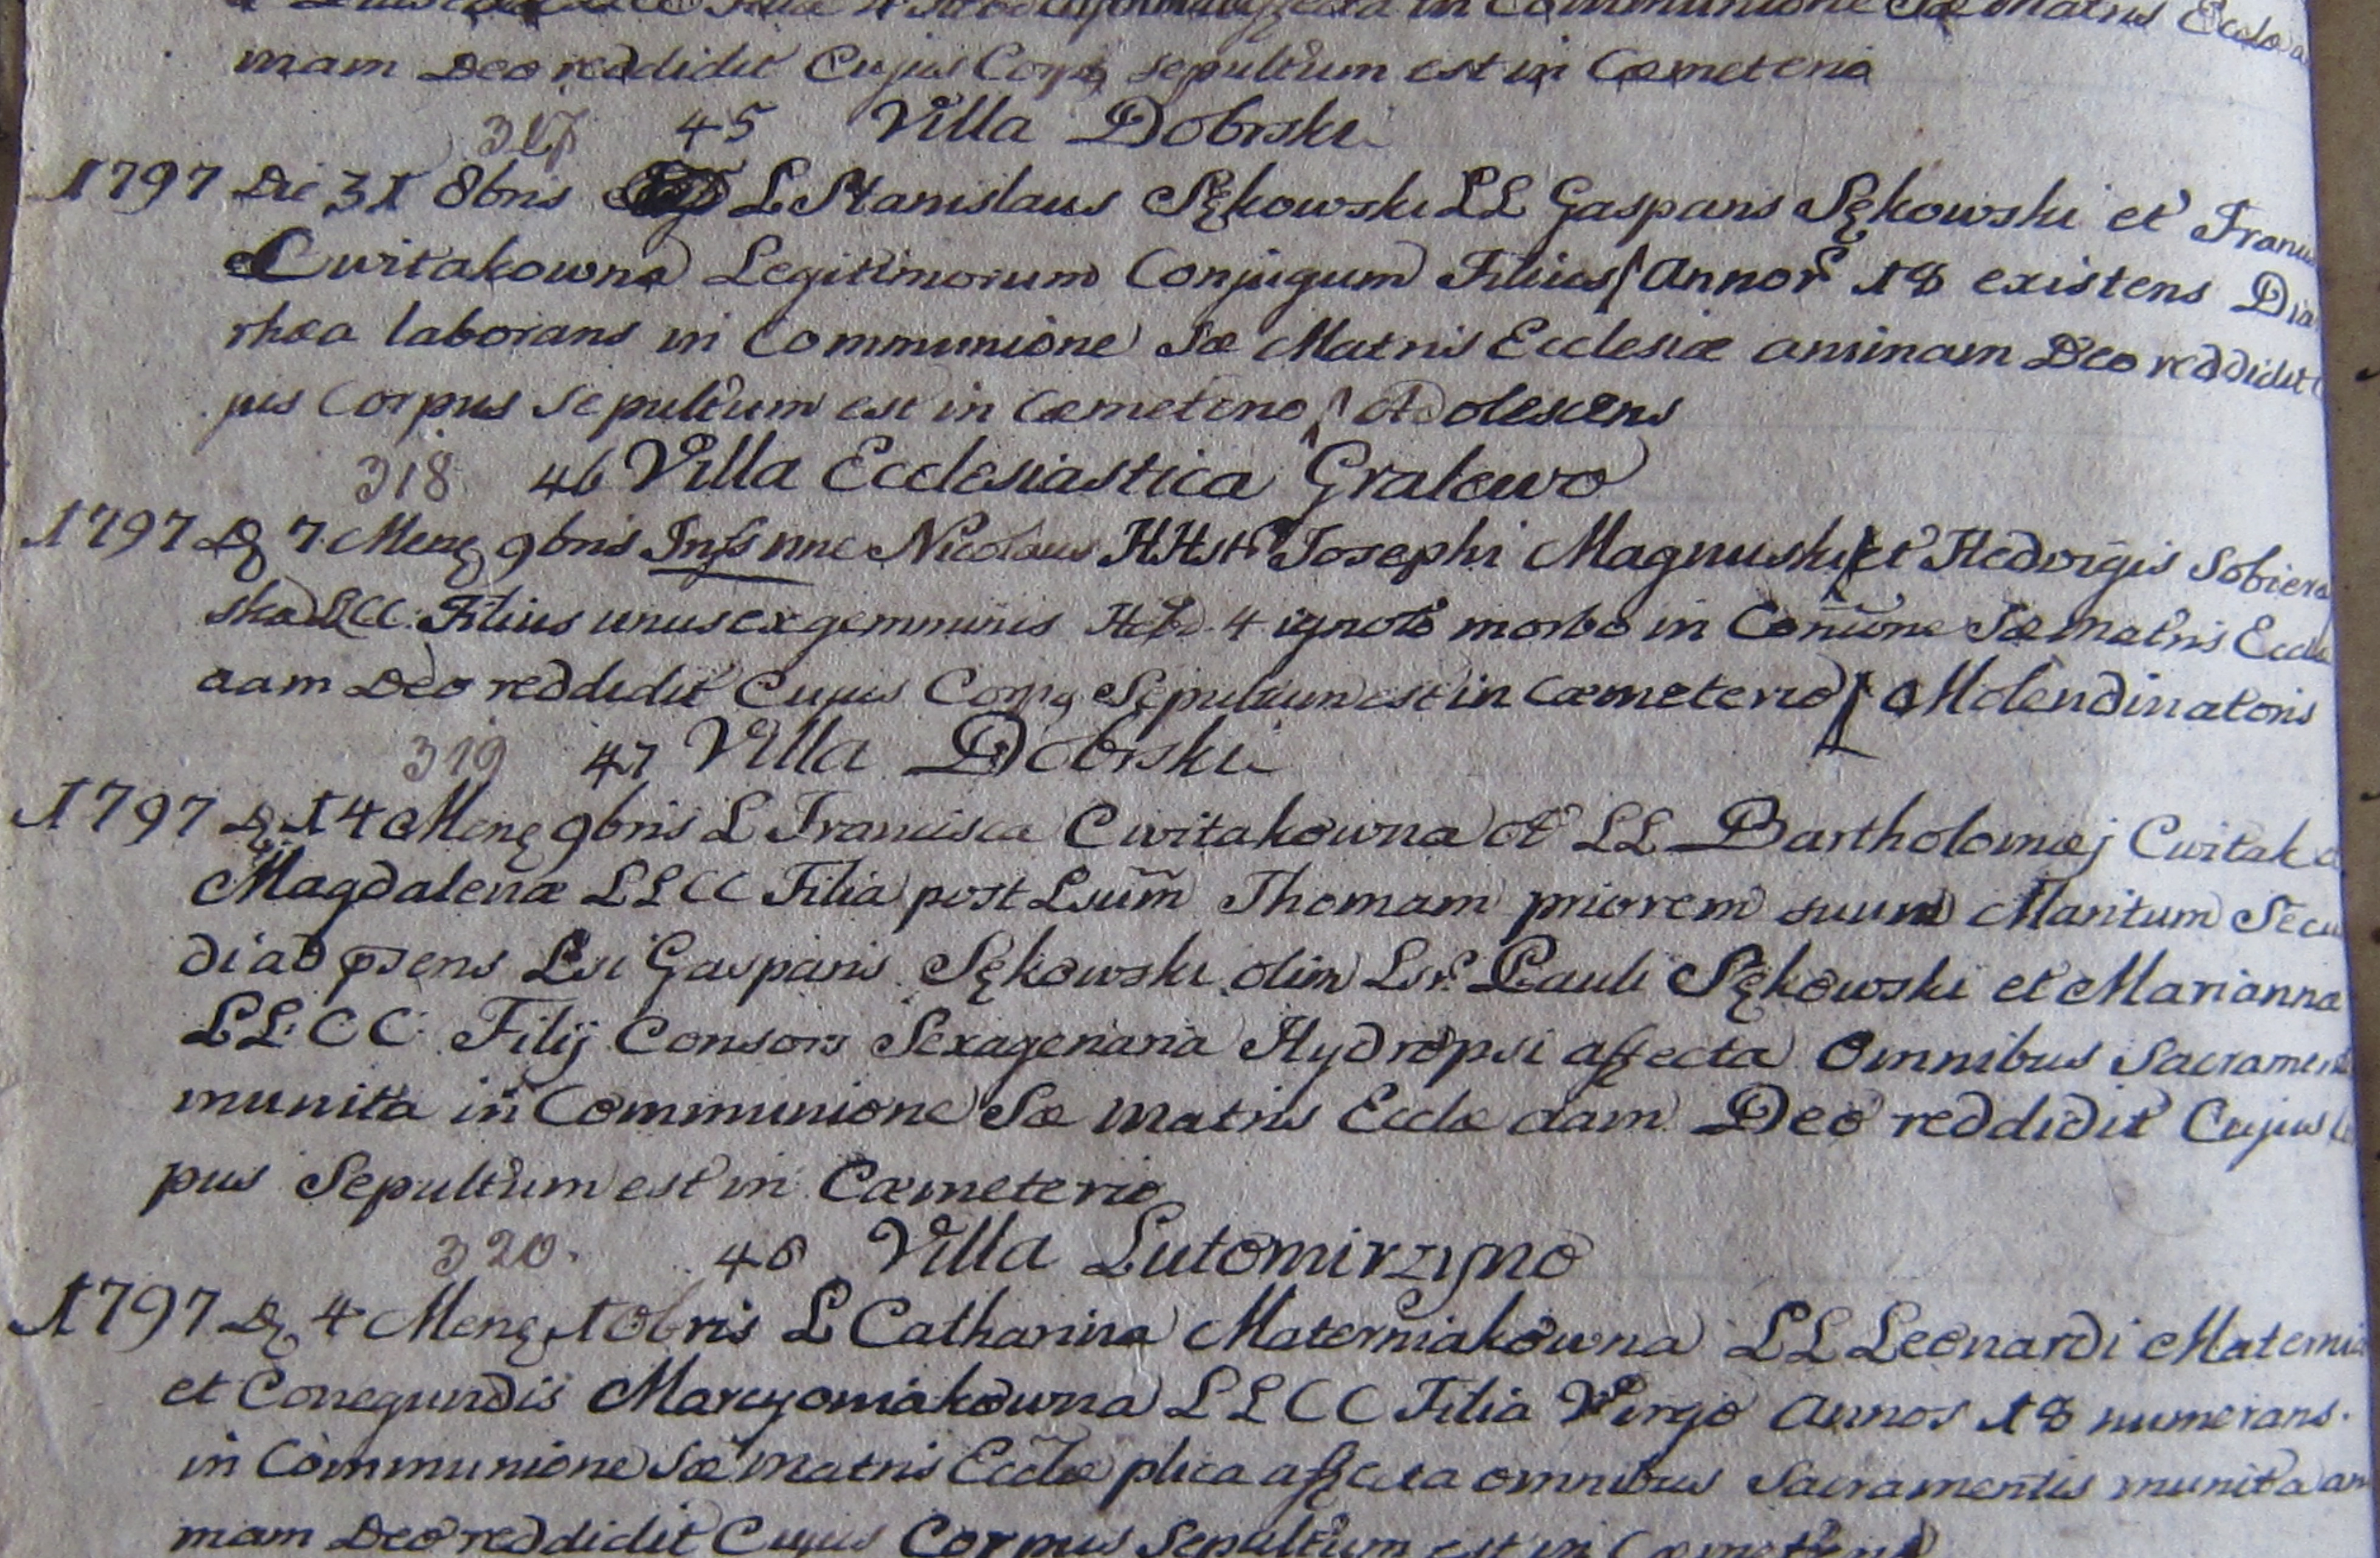 in Communione Sæ Matris Ecclæ a
mam Deo reddidit Cujus Corpg sepultum est in Cæmeterio
317 45 Villa Dobrski
1797 Die 31 8bris L Stanislaus Sękowski LL Gasparis Sękowski et Franci
Cwitakowna Legitimorum Conjugum Filius annor 18 existens Dia
rhæa laborans in Communione Sæ Matris Ecclesiæ animam Deo reddidit
jus Corpus Sepultum est in Cæmeterio Adolescens
318 46 Villa Ecclesiastica Gralewo
1797 D 7 Mens 9bris Infs nne Nicolaus HH Josephi Magnuski et Hedvigis Sobiera
ska LCC. Filius unus ex gemminis Hebd. 4 ignoto morbo in Coñione Sæ Matris Eccle
aam Deo reddidit Cujus Corpg Sepultum est in Cæmeterio Molendinatoris
319 47 Villa Dobrski
1797 D 14 Mens 9bris L Francisca Cwitakowna LL Bartholomæj Cwitak
Magdalenæ LLCC Filia post Lsum Thomam priorem suum Maritum Secu
di ad psens Lsi Gasparis Sękowski olim Lsr Pauli Sękowski et Marianna
LLCC Filij Consors Sexagenaria Hydropsi affecta Omnibus Sacrament
munita in Communione Sæ Matris Eccle aam Deo reddidit Cujus
pus Sepultum est in Cæmeterio
320. 48 Villa Lutomirzyno
1797 D 4 Mens 10bris L Catharina Materniakowna LL Leonardi Maternia
et Conegundis Marcyoniakowna LLCC Filia Virgo Annos 18 numerans.
in Communione Sæ Matris Eccle plica affecta omnibus Sacramentis munita an
mam Deo reddidit Cujus Corpus Sepultum est in Cæmeterio